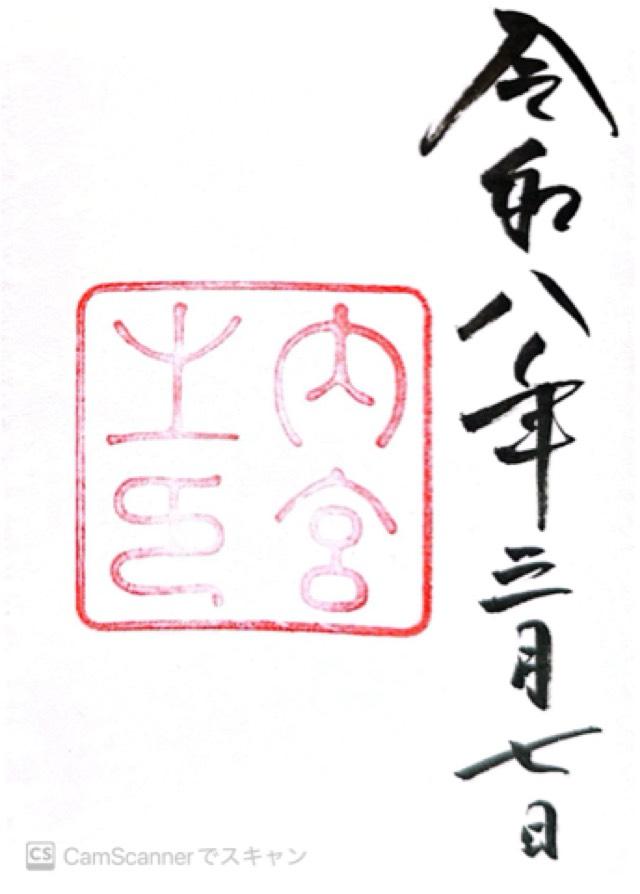 令和八年三月七日
内宮
之印
CS CamScannerでスキャン